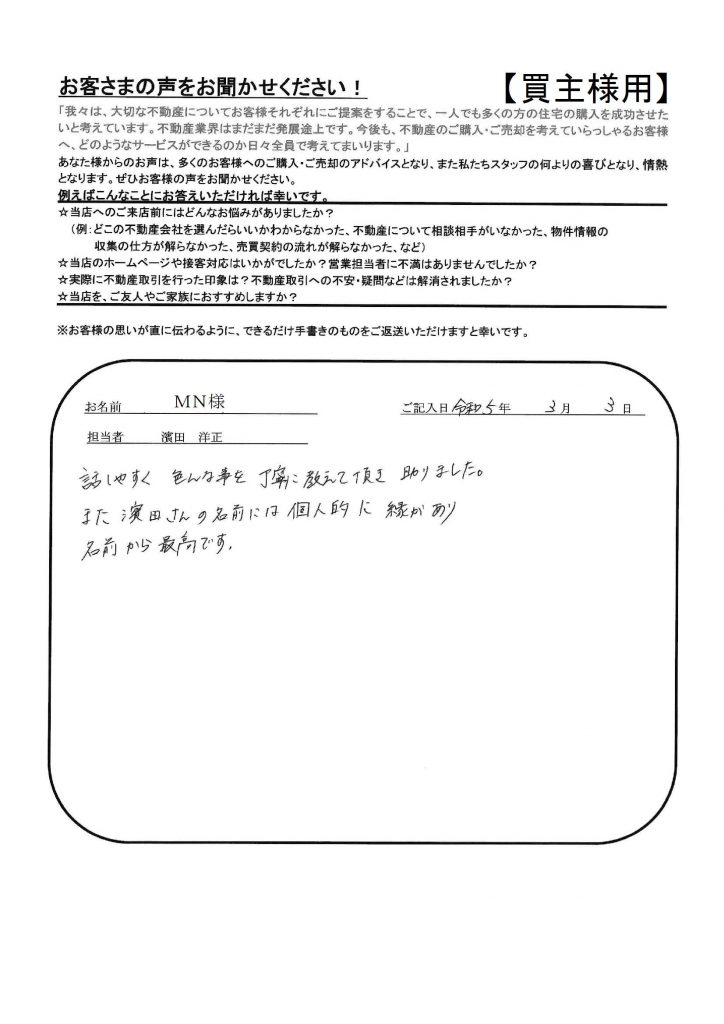 お客さまの声をお聞かせください！
【買主様用】
「我々は、大切な不動産についてお客様それぞれにご提案をすることで、一人でも多くの方の住宅の購入を成功させた
いと考えています。不動産業界はまだまだ発展途上です。今後も、不動産のご購入・ご売却を考えていらっしゃるお客様
へ、どのようなサービスができるのか日々全員で考えてまいります。」
あなた様からのお声は、多くのお客様へのご購入・ご売却のアドバイスとなり、また私たちスタッフの何よりの喜びとなり、情熱
となります。ぜひお客様の声をお聞かせください。
例えばこんなことにお答えいただければ幸いです。
☆当店へのご来店前にはどんなお悩みがありましたか？
（例：どこの不動産会社を選んだらいいかわからなかった、不動産について相談相手がいなかった、物件情報の
収集の仕方が解らなかった、売買契約の流れが解らなかった、など）
☆当店のホームページや接客対応はいかがでしたか？営業担当者に不満はありませんでしたか？
☆実際に不動産取引を行った印象は？不動産取引への不安・疑問などは解消されましたか？
☆当店を、ご友人やご家族におすすめしますか？
※お客様の思いが直に伝わるように、できるだけ手書きのものをご返送いただけますと幸いです。
お名前 MN様 ご記入日 令和5年 3月 3日
担当者 濱田 洋正
話しやすく 色んな事を 丁寧に教えて頂き 助りました。
また 濱田さんの名前には 個人的に 縁があり
名前から最高です。